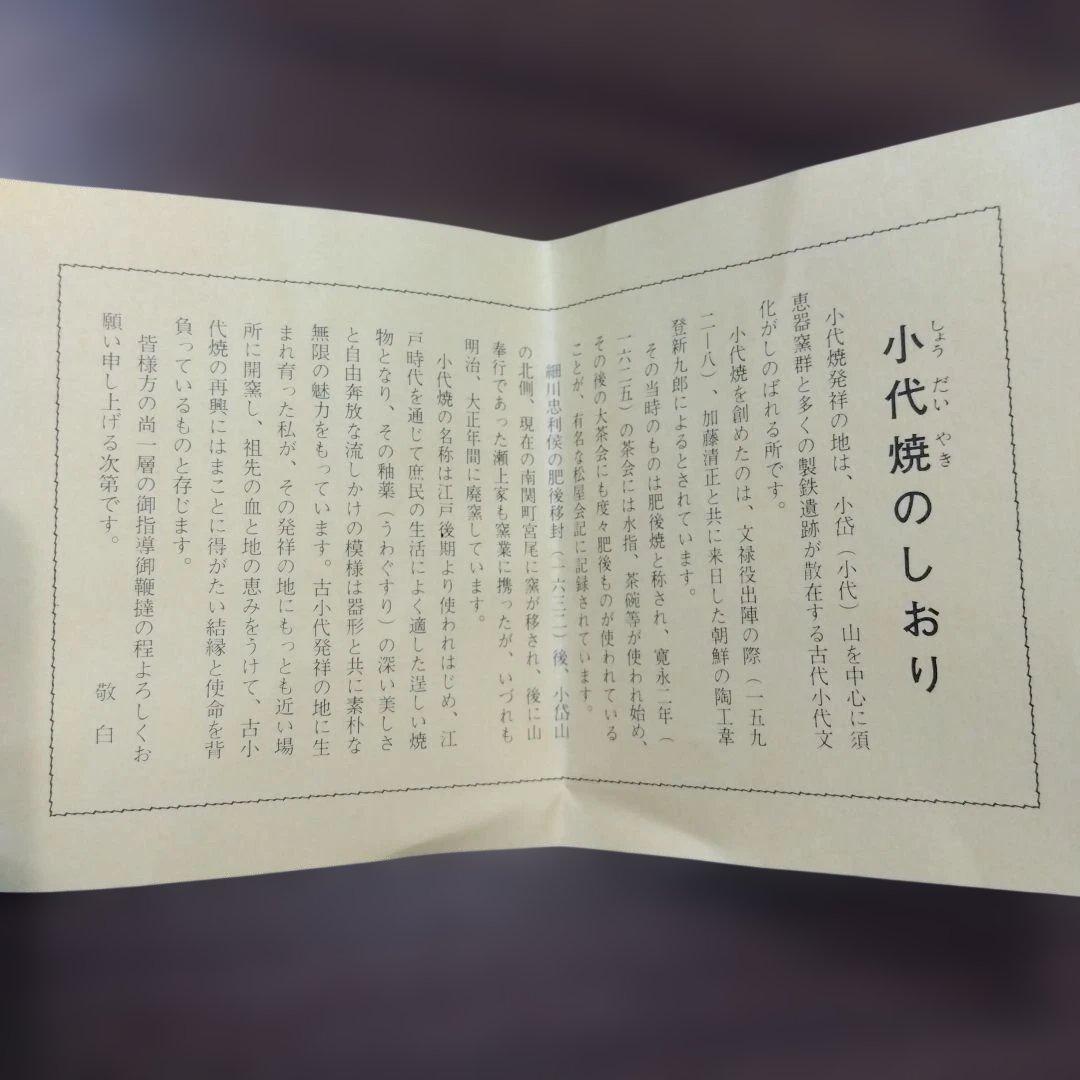 小代焼のしおり
しょう だい やき
小代焼発祥の地は、小岱（小代）山を中心に須
恵器窯群と多くの製鉄遺跡が散在する古代小代文
化がしのばれる所です。
小代焼を創めたのは、文禄役出陣の際（一五九
二―八）、加藤清正と共に来日した朝鮮の陶工韋
登新九郎によるとされています。
その当時のものは肥後焼と称され、寛永二年（
一六二五）の茶会には水指、茶碗等が使われ始め、
その後の大茶会にも度々肥後ものが使われている
ことが、有名な松屋会記に記録されています。
細川忠利侯の肥後移封（一六三二）後、小岱山
の北側、現在の南関町宮尾に窯が移され、後に山
奉行であった瀬上家も窯業に携ったが、いづれも
明治、大正年間に廃窯しています。
小代焼の名称は江戸後期より使われはじめ、江
戸時代を通じて庶民の生活によく適した逞しい焼
物となり、その釉薬（うわぐすり）の深い美しさ
と自由奔放な流しかけの模様は器形と共に素朴な
無限の魅力をもっています。古小代発祥の地に生
まれ育った私が、その発祥の地にもっとも近い場
所に開窯し、祖先の血と地の恵みをうけて、古小
代焼の再興にはまことに得がたい結縁と使命を背
負っているものと存じます。
皆様方の尚一層の御指導御鞭撻の程よろしくお
願い申し上げる次第です。
敬白